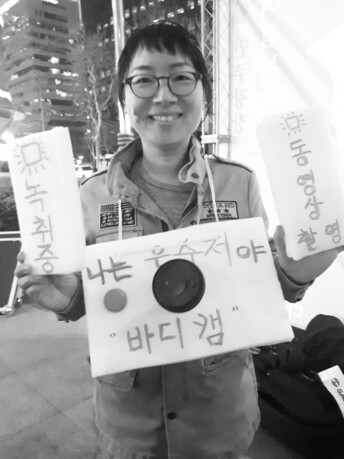 녹취중
나는 우수저야
"바디캠"
동영상
촬영